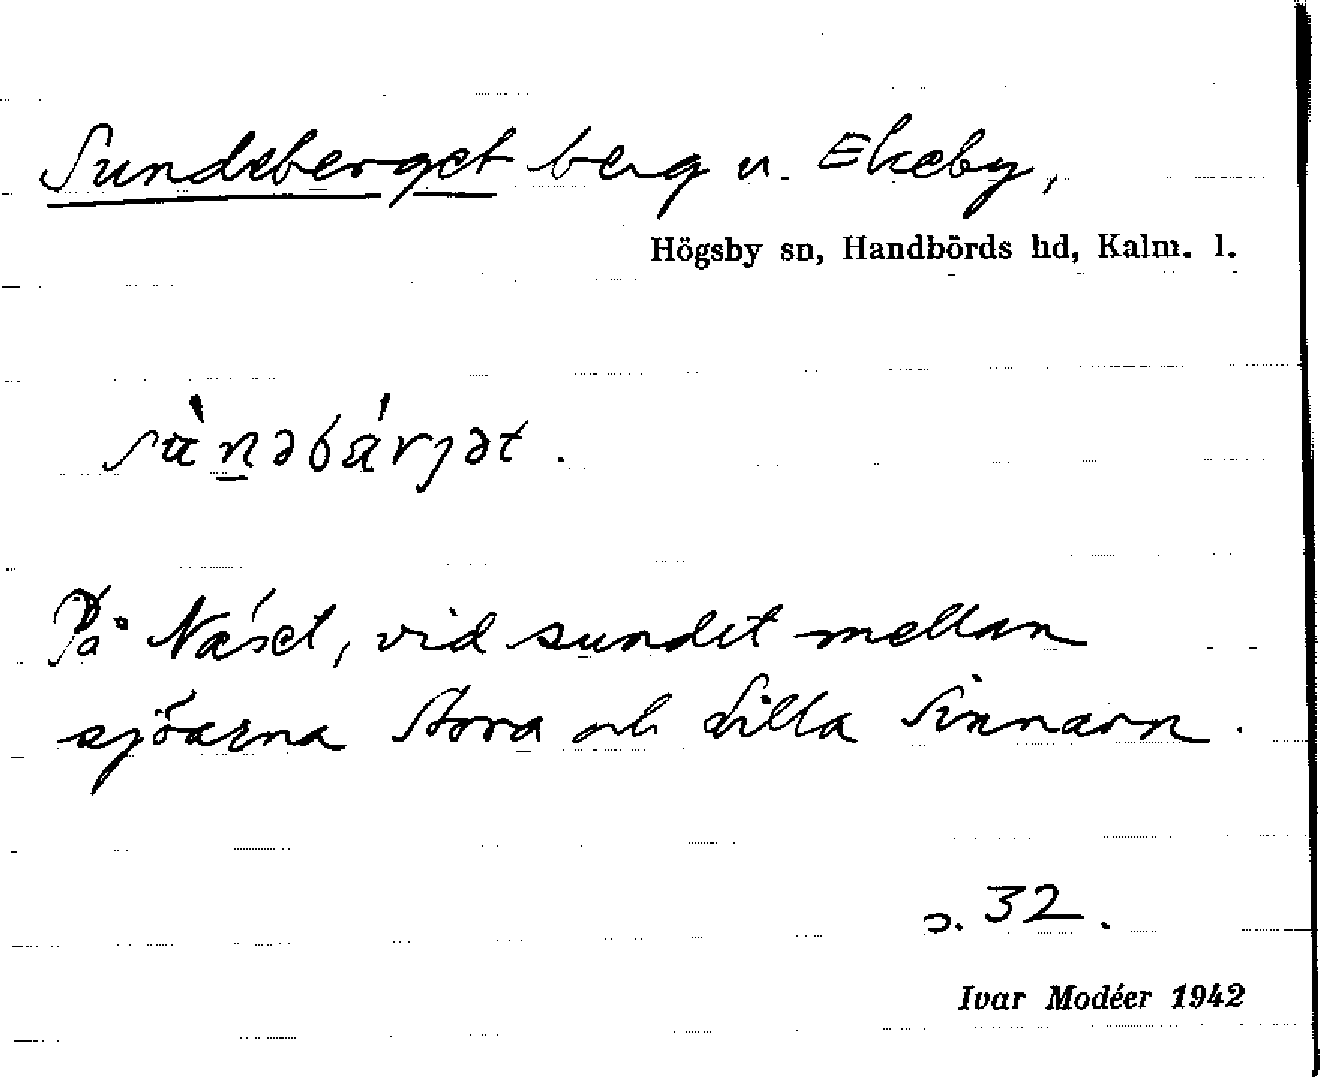 Sundeberget berg u. Ekeby,
Högsby sn, Handbörds hd, Kalm. l.
sùnəbárjət.
På Näset, vid sundet mellan
sjöarna Stora och Lilla Sinnarn.
s. 32.
Ivar Modéer 1942